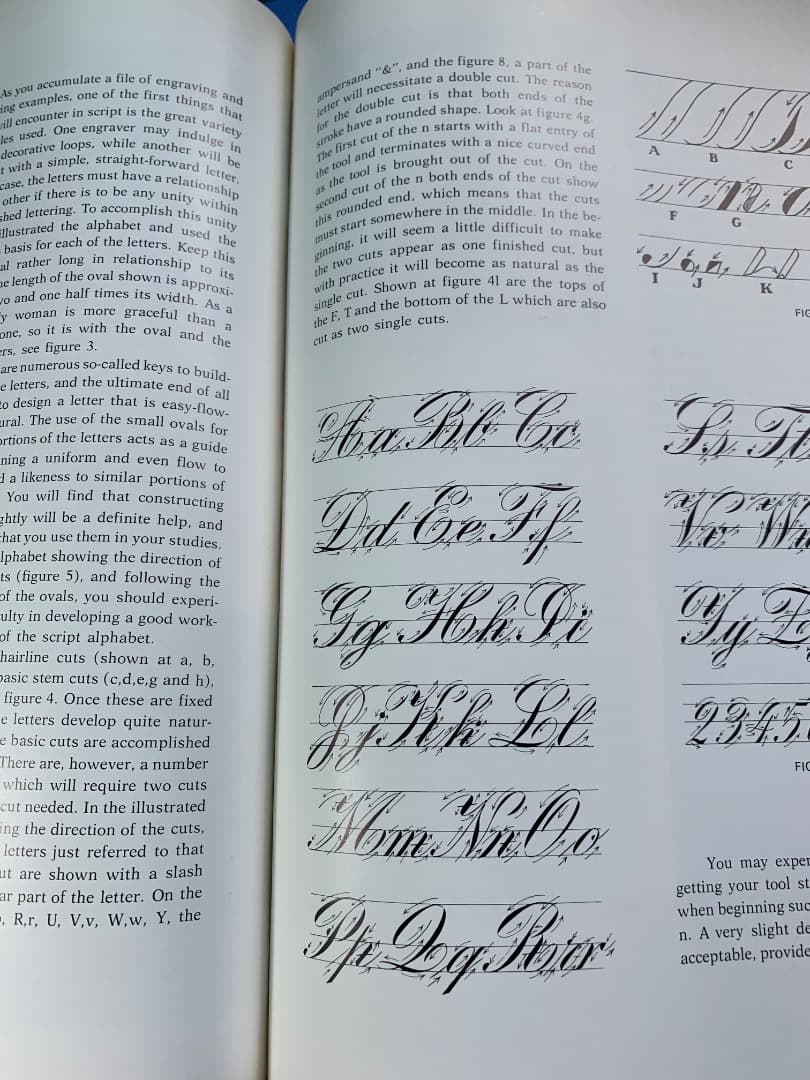 As you accumulate a file of engraving and
ing examples, one of the first things that
will encounter in script is the great variety
les used. One engraver may indulge in
decorative loops, while another will be
t with a simple, straight-forward letter.
case, the letters must have a relationship
other if there is to be any unity within
shed lettering. To accomplish this unity
illustrated the alphabet and used the
basis for each of the letters. Keep this
al rather long in relationship to its
he length of the oval shown is approxi-
wo and one half times its width. As a
y woman is more graceful than a
one, so it is with the oval and the
ers, see figure 3.
are numerous so-called keys to build-
e letters, and the ultimate end of all
to design a letter that is easy-flow-
ural. The use of the small ovals for
ortions of the letters acts as a guide
ning a uniform and even flow to
d a likeness to similar portions of
You will find that constructing
ghtly will be a definite help, and
that you use them in your studies.
lphabet showing the direction of
ts (figure 5), and following the
of the ovals, you should experi-
ulty in developing a good work-
of the script alphabet.
hairline cuts (shown at a, b,
basic stem cuts (c,d,e,g and h),
figure 4. Once these are fixed
e letters develop quite natur-
e basic cuts are accomplished
There are, however, a number
which will require two cuts
cut needed. In the illustrated
ing the direction of the cuts,
letters just referred to that
ut are shown with a slash
ar part of the letter. On the
R,r, U, V,v, W,w, Y, the
ampersand "&", and the figure 8, a part of the
letter will necessitate a double cut. The reason
for the double cut is that both ends of the
stroke have a rounded shape. Look at figure 4g.
The first cut of the n starts with a flat entry of
the tool and terminates with a nice curved end
as the tool is brought out of the cut. On the
second cut of the n both ends of the cut show
this rounded end, which means that the cuts
must start somewhere in the middle. In the be-
ginning, it will seem a little difficult to make
the two cuts appear as one finished cut, but
with practice it will become as natural as the
single cut. Shown at figure 4l are the tops of
the F, T and the bottom of the L which are also
cut as two single cuts.
Aa Bb Cc
Dd Ee Ff
Gg Hh Ii
Jj Kk Ll
Mm Nn Oo
Pp Qq Rr r
A B C
F G
I J K
FIG
Ss Tt
Vv Ww
Yy Z
2345
FIG
You may exper
getting your tool st
when beginning suc
n. A very slight de
acceptable, provide